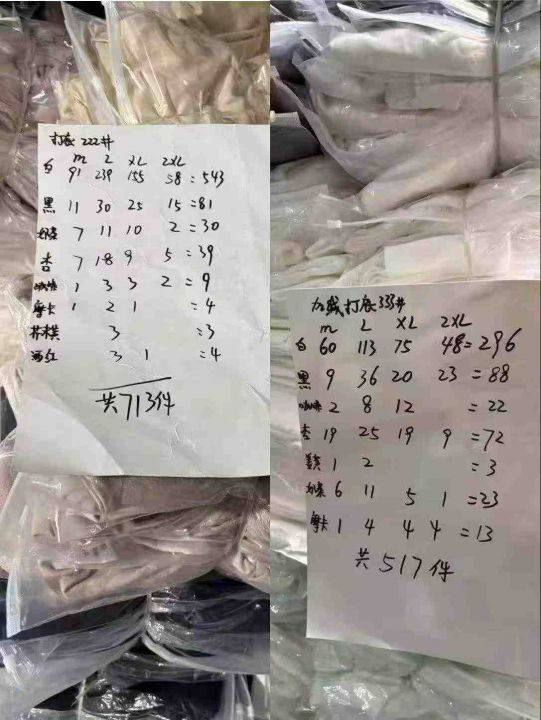 打底222#
m L XL 2XL
白 91 239 155 58=543
黑 11 30 25 15=81
7 11 10 2=30
杏 7 18 9 5=39
咖啡 1 3 3 2=9
摩卡 1 2 1 =4
3 =3
酒红 3 1 =4
共713件
加绒打底333#
m L XL 2XL
白 60 113 75 48=296
黑 9 36 20 23=88
咖啡 2 8 12 =22
杏 19 25 19 9=72
1 2 =3
6 11 5 1=23
摩卡 1 4 4 4=13
共517件